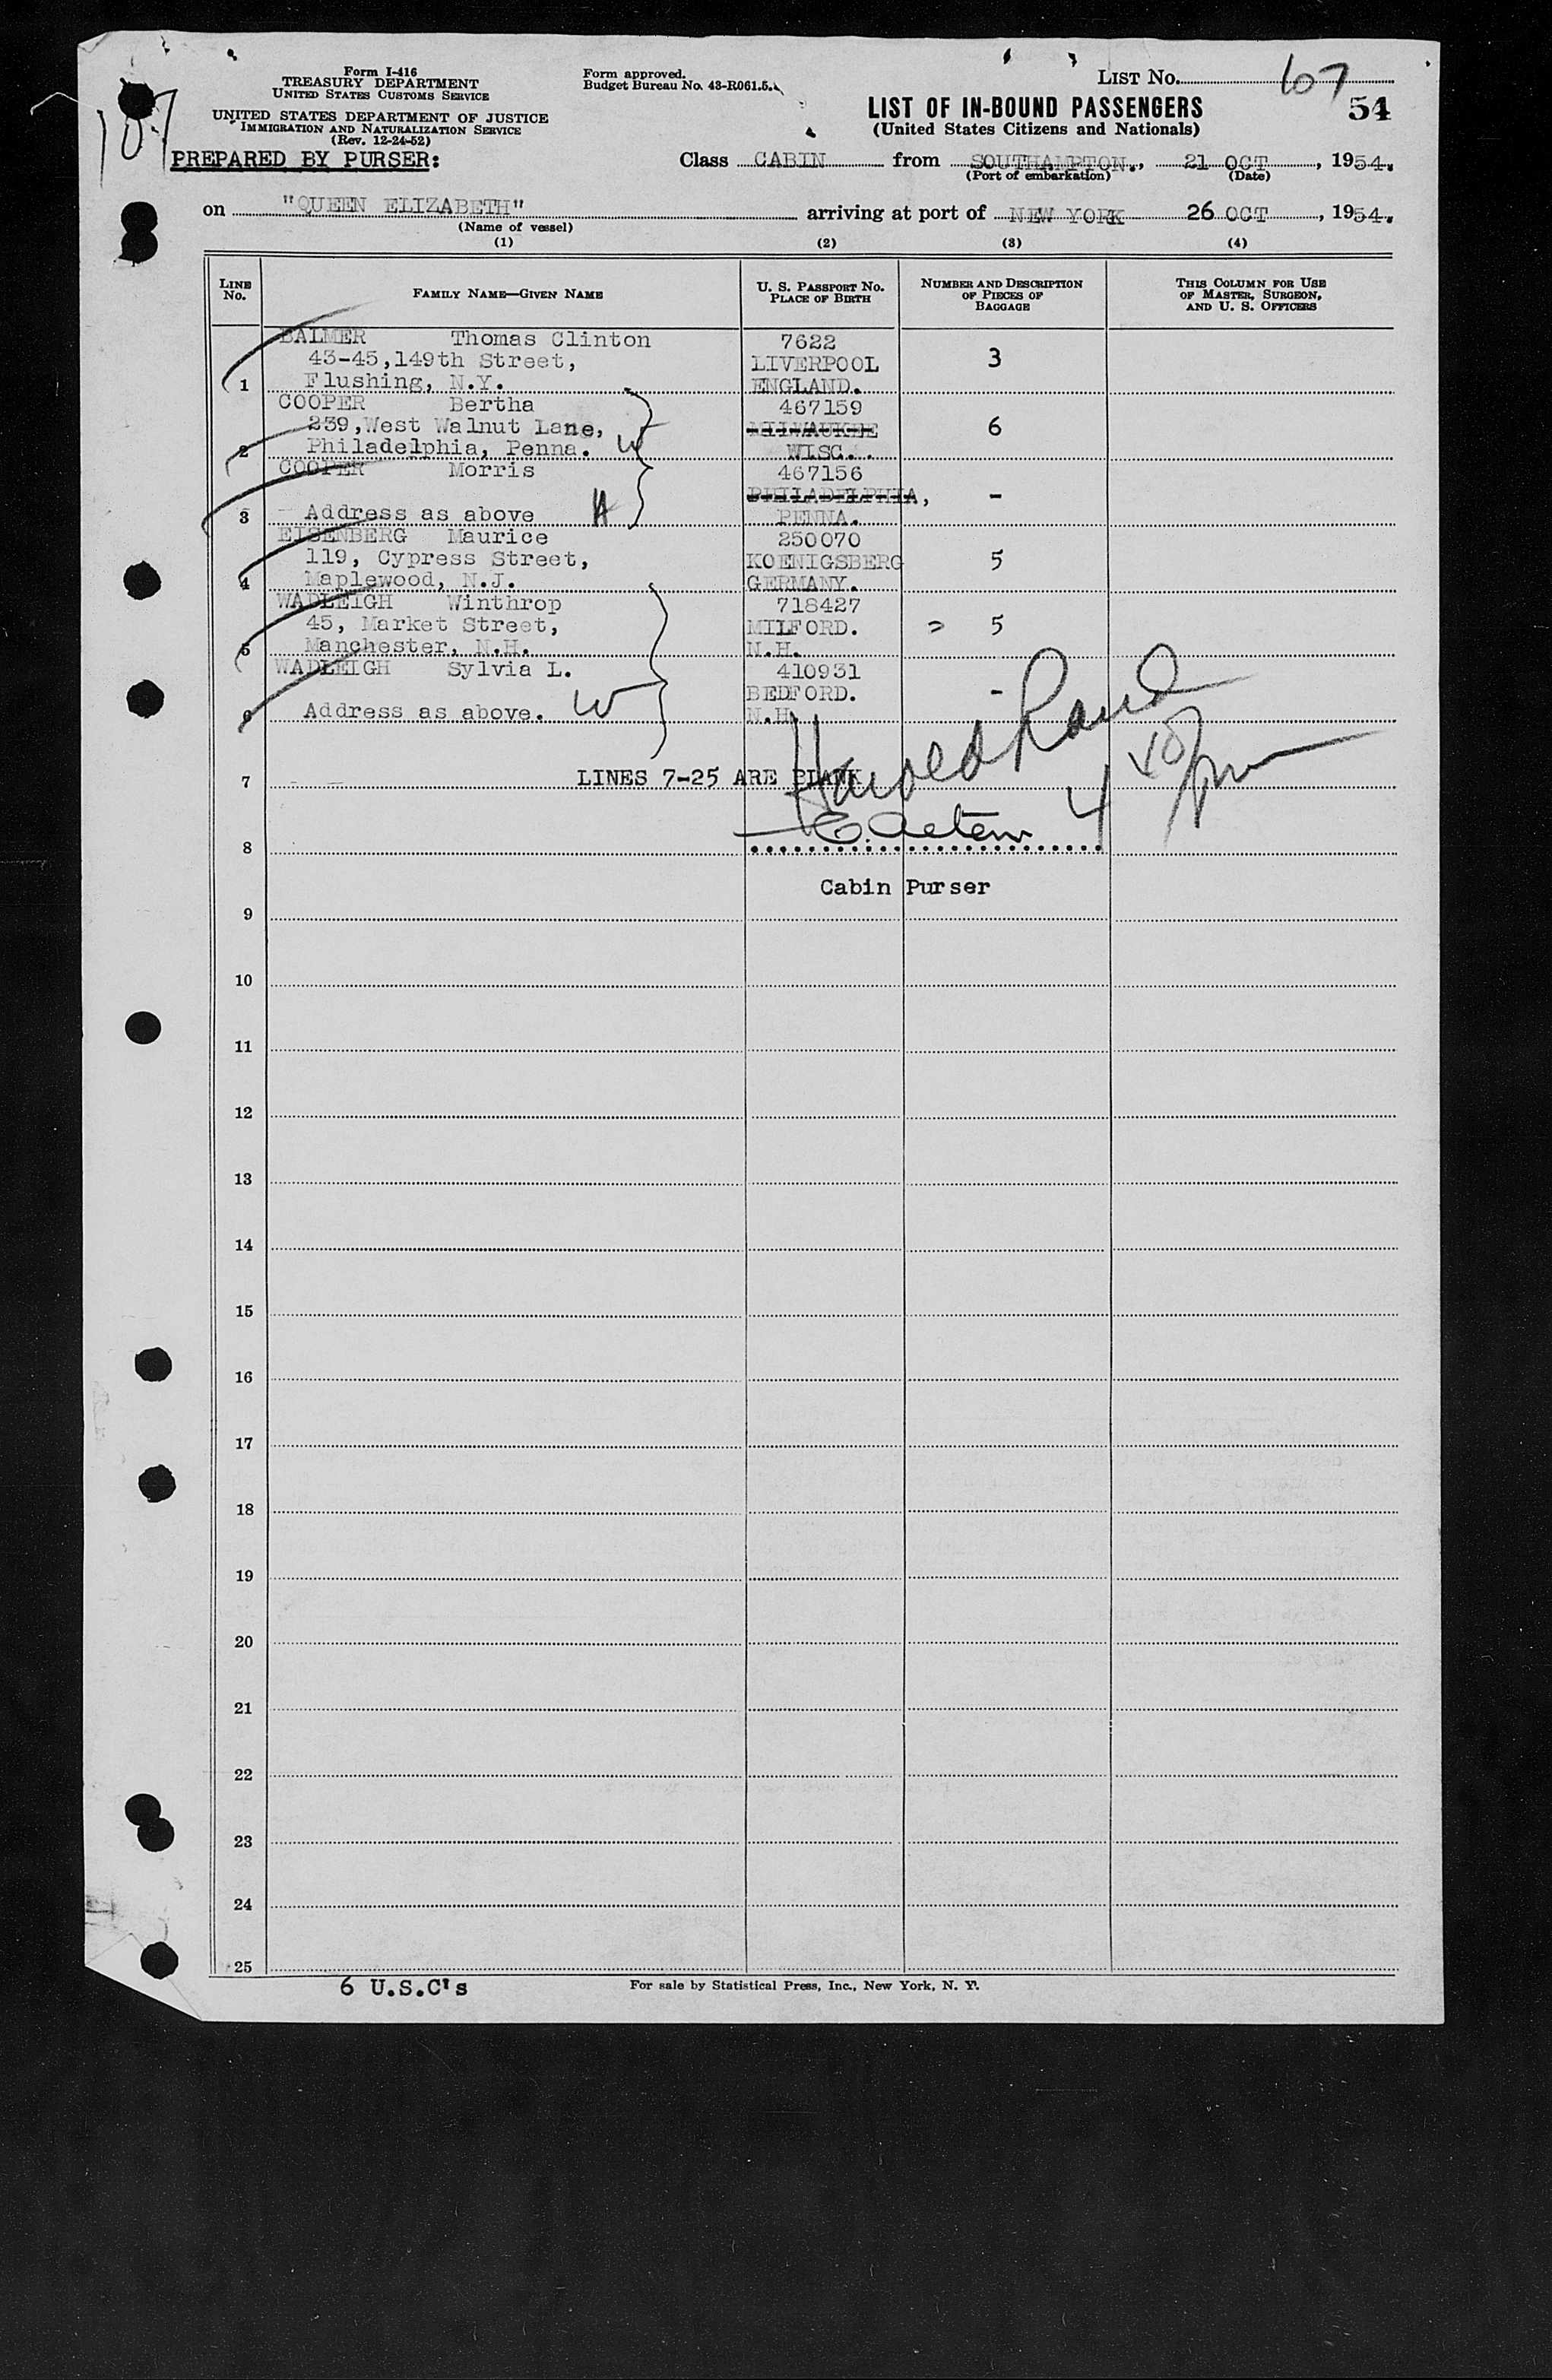 Form I-416
TREASURY DEPARTMENT
UNITED STATES CUSTOMS SERVICE
UNITED STATES DEPARTMENT OF JUSTICE
IMMIGRATION AND NATURALIZATION SERVICE
(Rev. 12-24-52)
PREPARED BY PURSER:
107
Form approved.
Budget Bureau No. 43-R061.5.
LIST No. 107
54
LIST OF IN-BOUND PASSENGERS
(United States Citizens and Nationals)
Class CABIN from SOUTHAMPTON., 21 OCT, 1954.
(Port of embarkation) (Date)
on "QUEEN ELIZABETH" arriving at port of NEW YORK 26 OCT, 1954.
(Name of vessel)
(1) (2) (3) (4)
LINE No. FAMILY NAME—GIVEN NAME U. S. PASSPORT No. PLACE OF BIRTH NUMBER AND DESCRIPTION OF PIECES OF BAGGAGE THIS COLUMN FOR USE OF MASTER, SURGEON, AND U. S. OFFICERS
BALMER Thomas Clinton 7622
43-45,149th Street, LIVERPOOL 3
1 Flushing, N.Y. ENGLAND.
COOPER Bertha 467159
239,West Walnut Lane, MILWAUKEE 6
2 Philadelphia, Penna. W WISC..
COOPER Morris 467156
PHILADELPHIA, -
3 Address as above H PENNA.
EISENBERG Maurice 250070
119, Cypress Street, KOENIGSBERG 5
4 Maplewood, N.J. GERMANY.
WADLEIGH Winthrop 718427
45, Market Street, MILFORD. 5
5 Manchester, N.H. N.H.
WADLEIGH Sylvia L. 410931
BEDFORD. -
6 Address as above. W N.H.
Harold Rand
7 LINES 7-25 ARE BLANK
8
Cabin Purser
9
10
11
12
13
14
15
16
17
18
19
20
21
22
23
24
25
6 U.S.C's
For sale by Statistical Press, Inc., New York, N. Y.